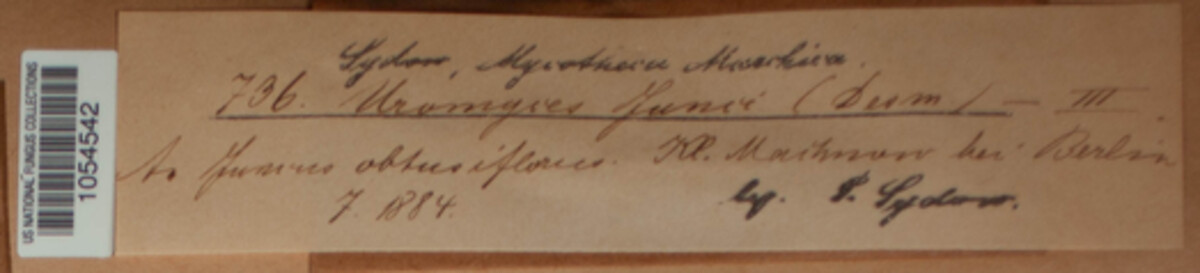 US NATIONAL FUNGUS COLLECTIONS
1054542
Sydow, Mycotheca Marchica.
736. Uromyces Junci (Desm) — III.
A. Juncus obtusiflorus. Kl. Machnow bei Berlin
7. 1884.
lg. P. Sydow.